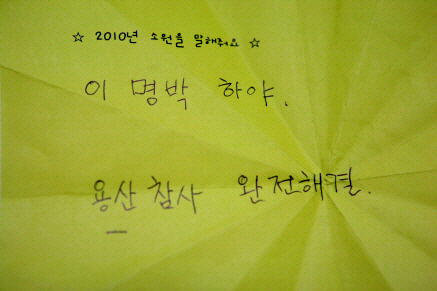 ☆ 2010년 소원을 말해줘요 ☆
이 명박 하야.
용산참사 완전해결.